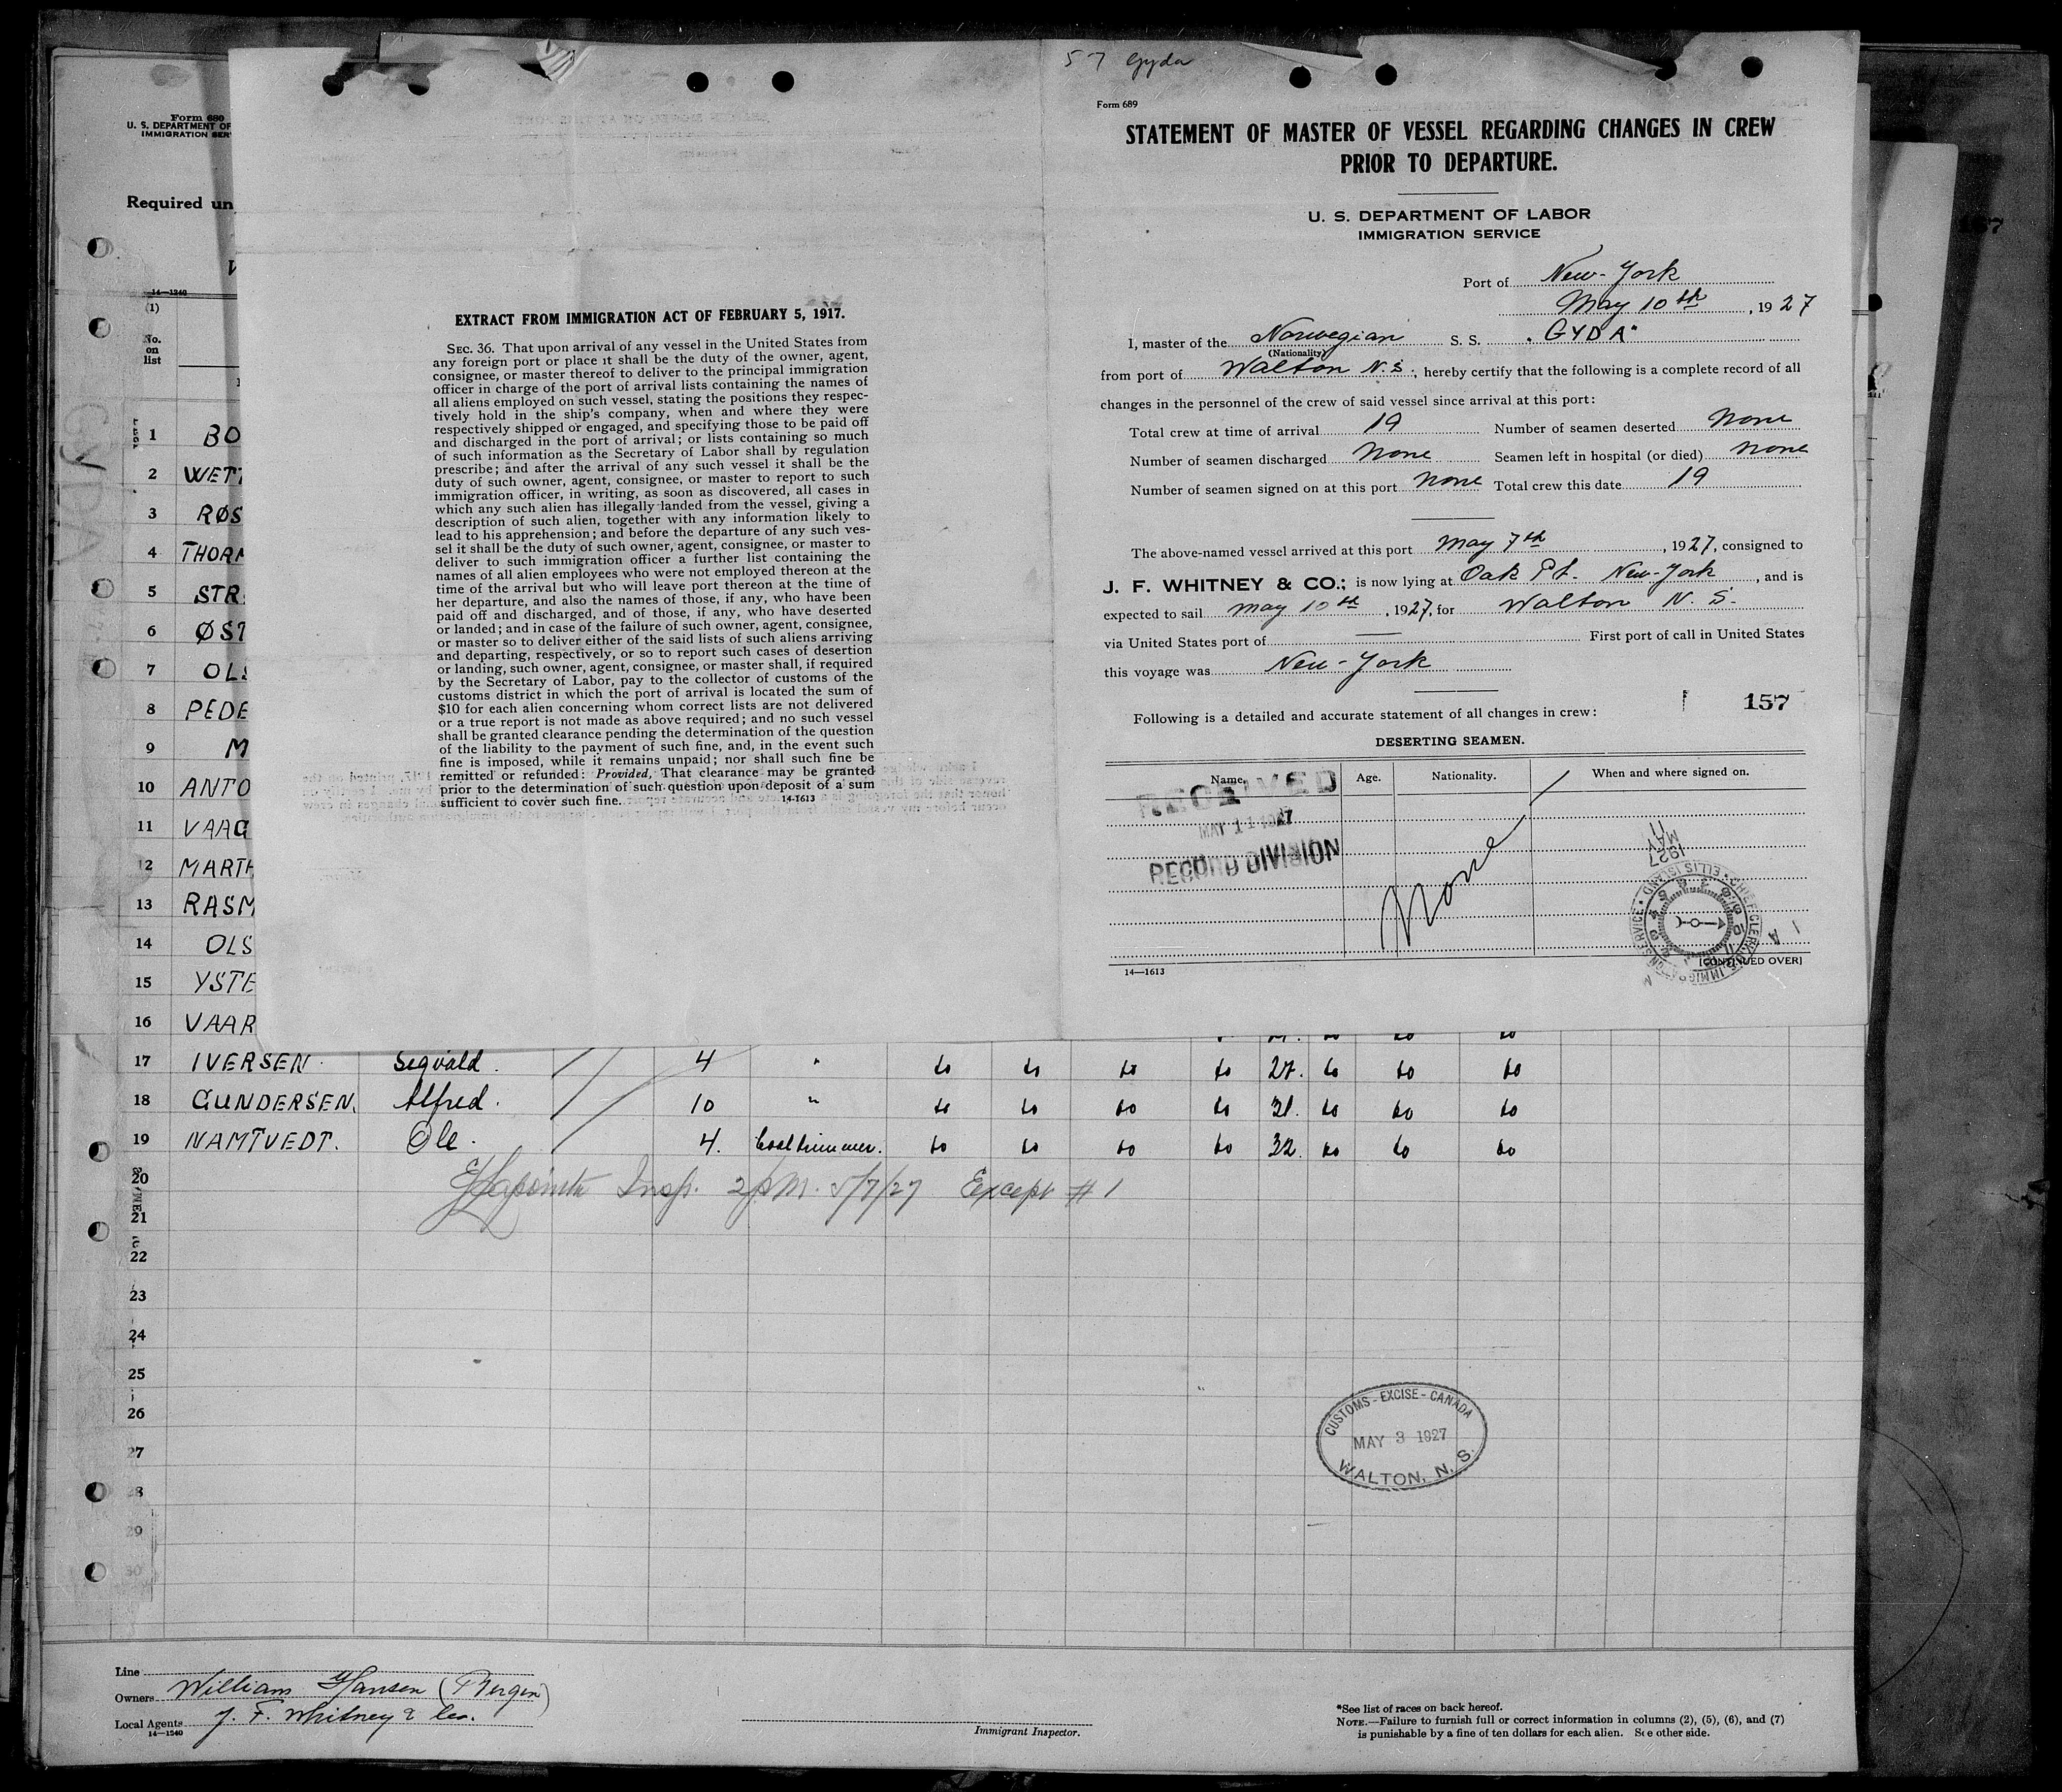 57 Gyda
Form 689
STATEMENT OF MASTER OF VESSEL REGARDING CHANGES IN CREW
PRIOR TO DEPARTURE.
U. S. DEPARTMENT OF LABOR
IMMIGRATION SERVICE
Port of New-York
May 10th, 1927
I, master of the Norwegian S. S. "GYDA"
(Nationality)
from port of Walton N.S., hereby certify that the following is a complete record of all
changes in the personnel of the crew of said vessel since arrival at this port:
Total crew at time of arrival 19 Number of seamen deserted None
Number of seamen discharged None Seamen left in hospital (or died) None
Number of seamen signed on at this port None Total crew this date 19
The above-named vessel arrived at this port May 7th, 1927, consigned to
J. F. WHITNEY & CO.; is now lying at Oak Pt. New-York, and is
expected to sail May 10th, 1927, for Walton N. S.
via United States port of — First port of call in United States
this voyage was New-York
157
Following is a detailed and accurate statement of all changes in crew:
DESERTING SEAMEN.
Name. Age. Nationality. When and where signed on.
RECEIVED
MAY 11 1927
RECORD DIVISION
None
MAY 11
1927
CHIEF CLERK
IMMIGRATION SERVICE • ELLIS ISLAND •
14—1613
[CONTINUED OVER]
EXTRACT FROM IMMIGRATION ACT OF FEBRUARY 5, 1917.
SEC. 36. That upon arrival of any vessel in the United States from
any foreign port or place it shall be the duty of the owner, agent,
consignee, or master thereof to deliver to the principal immigration
officer in charge of the port of arrival lists containing the names of
all aliens employed on such vessel, stating the positions they respec-
tively hold in the ship's company, when and where they were
respectively shipped or engaged, and specifying those to be paid off
and discharged in the port of arrival; or lists containing so much
of such information as the Secretary of Labor shall by regulation
prescribe; and after the arrival of any such vessel it shall be the
duty of such owner, agent, consignee, or master to report to such
immigration officer, in writing, as soon as discovered, all cases in
which any such alien has illegally landed from the vessel, giving a
description of such alien, together with any information likely to
lead to his apprehension; and before the departure of any such ves-
sel it shall be the duty of such owner, agent, consignee, or master to
deliver to such immigration officer a further list containing the
names of all alien employees who were not employed thereon at the
time of the arrival but who will leave port thereon at the time of
her departure, and also the names of those, if any, who have been
paid off and discharged, and of those, if any, who have deserted
or landed; and in case of the failure of such owner, agent, consignee,
or master so to deliver either of the said lists of such aliens arriving
and departing, respectively, or so to report such cases of desertion
or landing, such owner, agent, consignee, or master shall, if required
by the Secretary of Labor, pay to the collector of customs of the
customs district in which the port of arrival is located the sum of
$10 for each alien concerning whom correct lists are not delivered
or a true report is not made as above required; and no such vessel
shall be granted clearance pending the determination of the question
of the liability to the payment of such fine, and, in the event such
fine is imposed, while it remains unpaid; nor shall such fine be
remitted or refunded: Provided, That clearance may be granted
prior to the determination of such question upon deposit of a sum
sufficient to cover such fine.
14-1613
Form 680
U. S. DEPARTMENT OF
IMMIGRATION SER
Required un
14—1240
(1)
No.
on
list
GYDA
1 BO
2 WETT
3 RØS
4 THORN
5 STR
6 ØST
7 OLS
8 PEDE
9 M
10 ANTO
11 VAAG
12 MARTH
13 RASM
14 OLS
15 YSTE
16 VAAR
17 IVERSEN Sigvald. 4 " do do do do 27. do do do
18 GUNDERSEN. Alfred. 10 " do do do do 31. do do do
19 NAMTVEDT. Ole. 4. Coaltrimmer. do do do do 32. do do do
20
Insp. 2 PM. 5/7/27 Except #1
21
22
23
24
25
26
27
28
29
30
CUSTOMS - EXCISE - CANADA
MAY 3 1927
WALTON, N. S.
Line
Owners William Hansen (Bergen)
Local Agents J. F. Whitney & Co.
14—1240
Immigrant Inspector.
*See list of races on back hereof.
NOTE.—Failure to furnish full or correct information in columns (2), (5), (6), and (7)
is punishable by a fine of ten dollars for each alien. See other side.